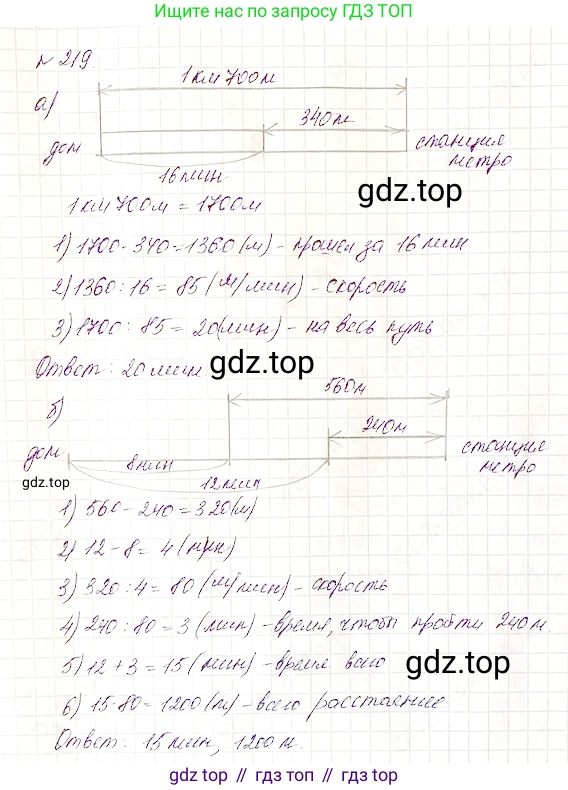 Решение ищи по запросу ГДЗ ТОП
№ 219
1 км 700 м
а)
340 м
дом
станция
метро
16 мин
gdz.top
1 км 700 м = 1700 м
1) 1700 - 340 = 1360 (м) - прошли за 16 мин
2) 1360 : 16 = 85 (м/мин) - скорость
3) 1700 : 85 = 20 (мин) - на весь путь
Ответ: 20 мин
gdz.top
560 м
б)
240 м
дом
станция
метро
8 мин
gdz.top
12 мин
1) 560 - 240 = 320 (м)
2) 12 - 8 = 4 (мин)
3) 320 : 4 = 80 (м/мин) - скорость
4) 240 : 80 = 3 (мин) - время, чтобы пройти 240 м.
5) 12 + 3 = 15 (мин) - время всего
gdz.top
6) 15 · 80 = 1200 (м) - всего расстояние
Ответ: 15 мин, 1200 м.
gdz top // гдз топ // gdz.top